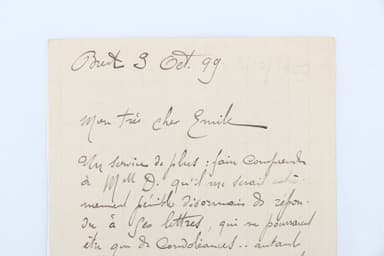 Brest 3 Oct. 99
Mon très cher Emile
Un service de plus : fais comprendre
à M. D. qu'il me serait
mement pénible désormais de répon-
dre à ses lettres, qui ne pourraient
être que de condoléances.. autant